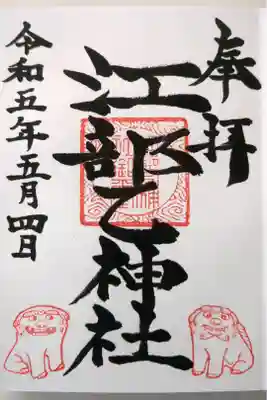 奉拝
江部乙神社
令和五年五月四日